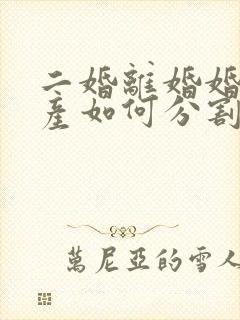 二婚離婚婚
產如何分割
萬尼亞的雪人